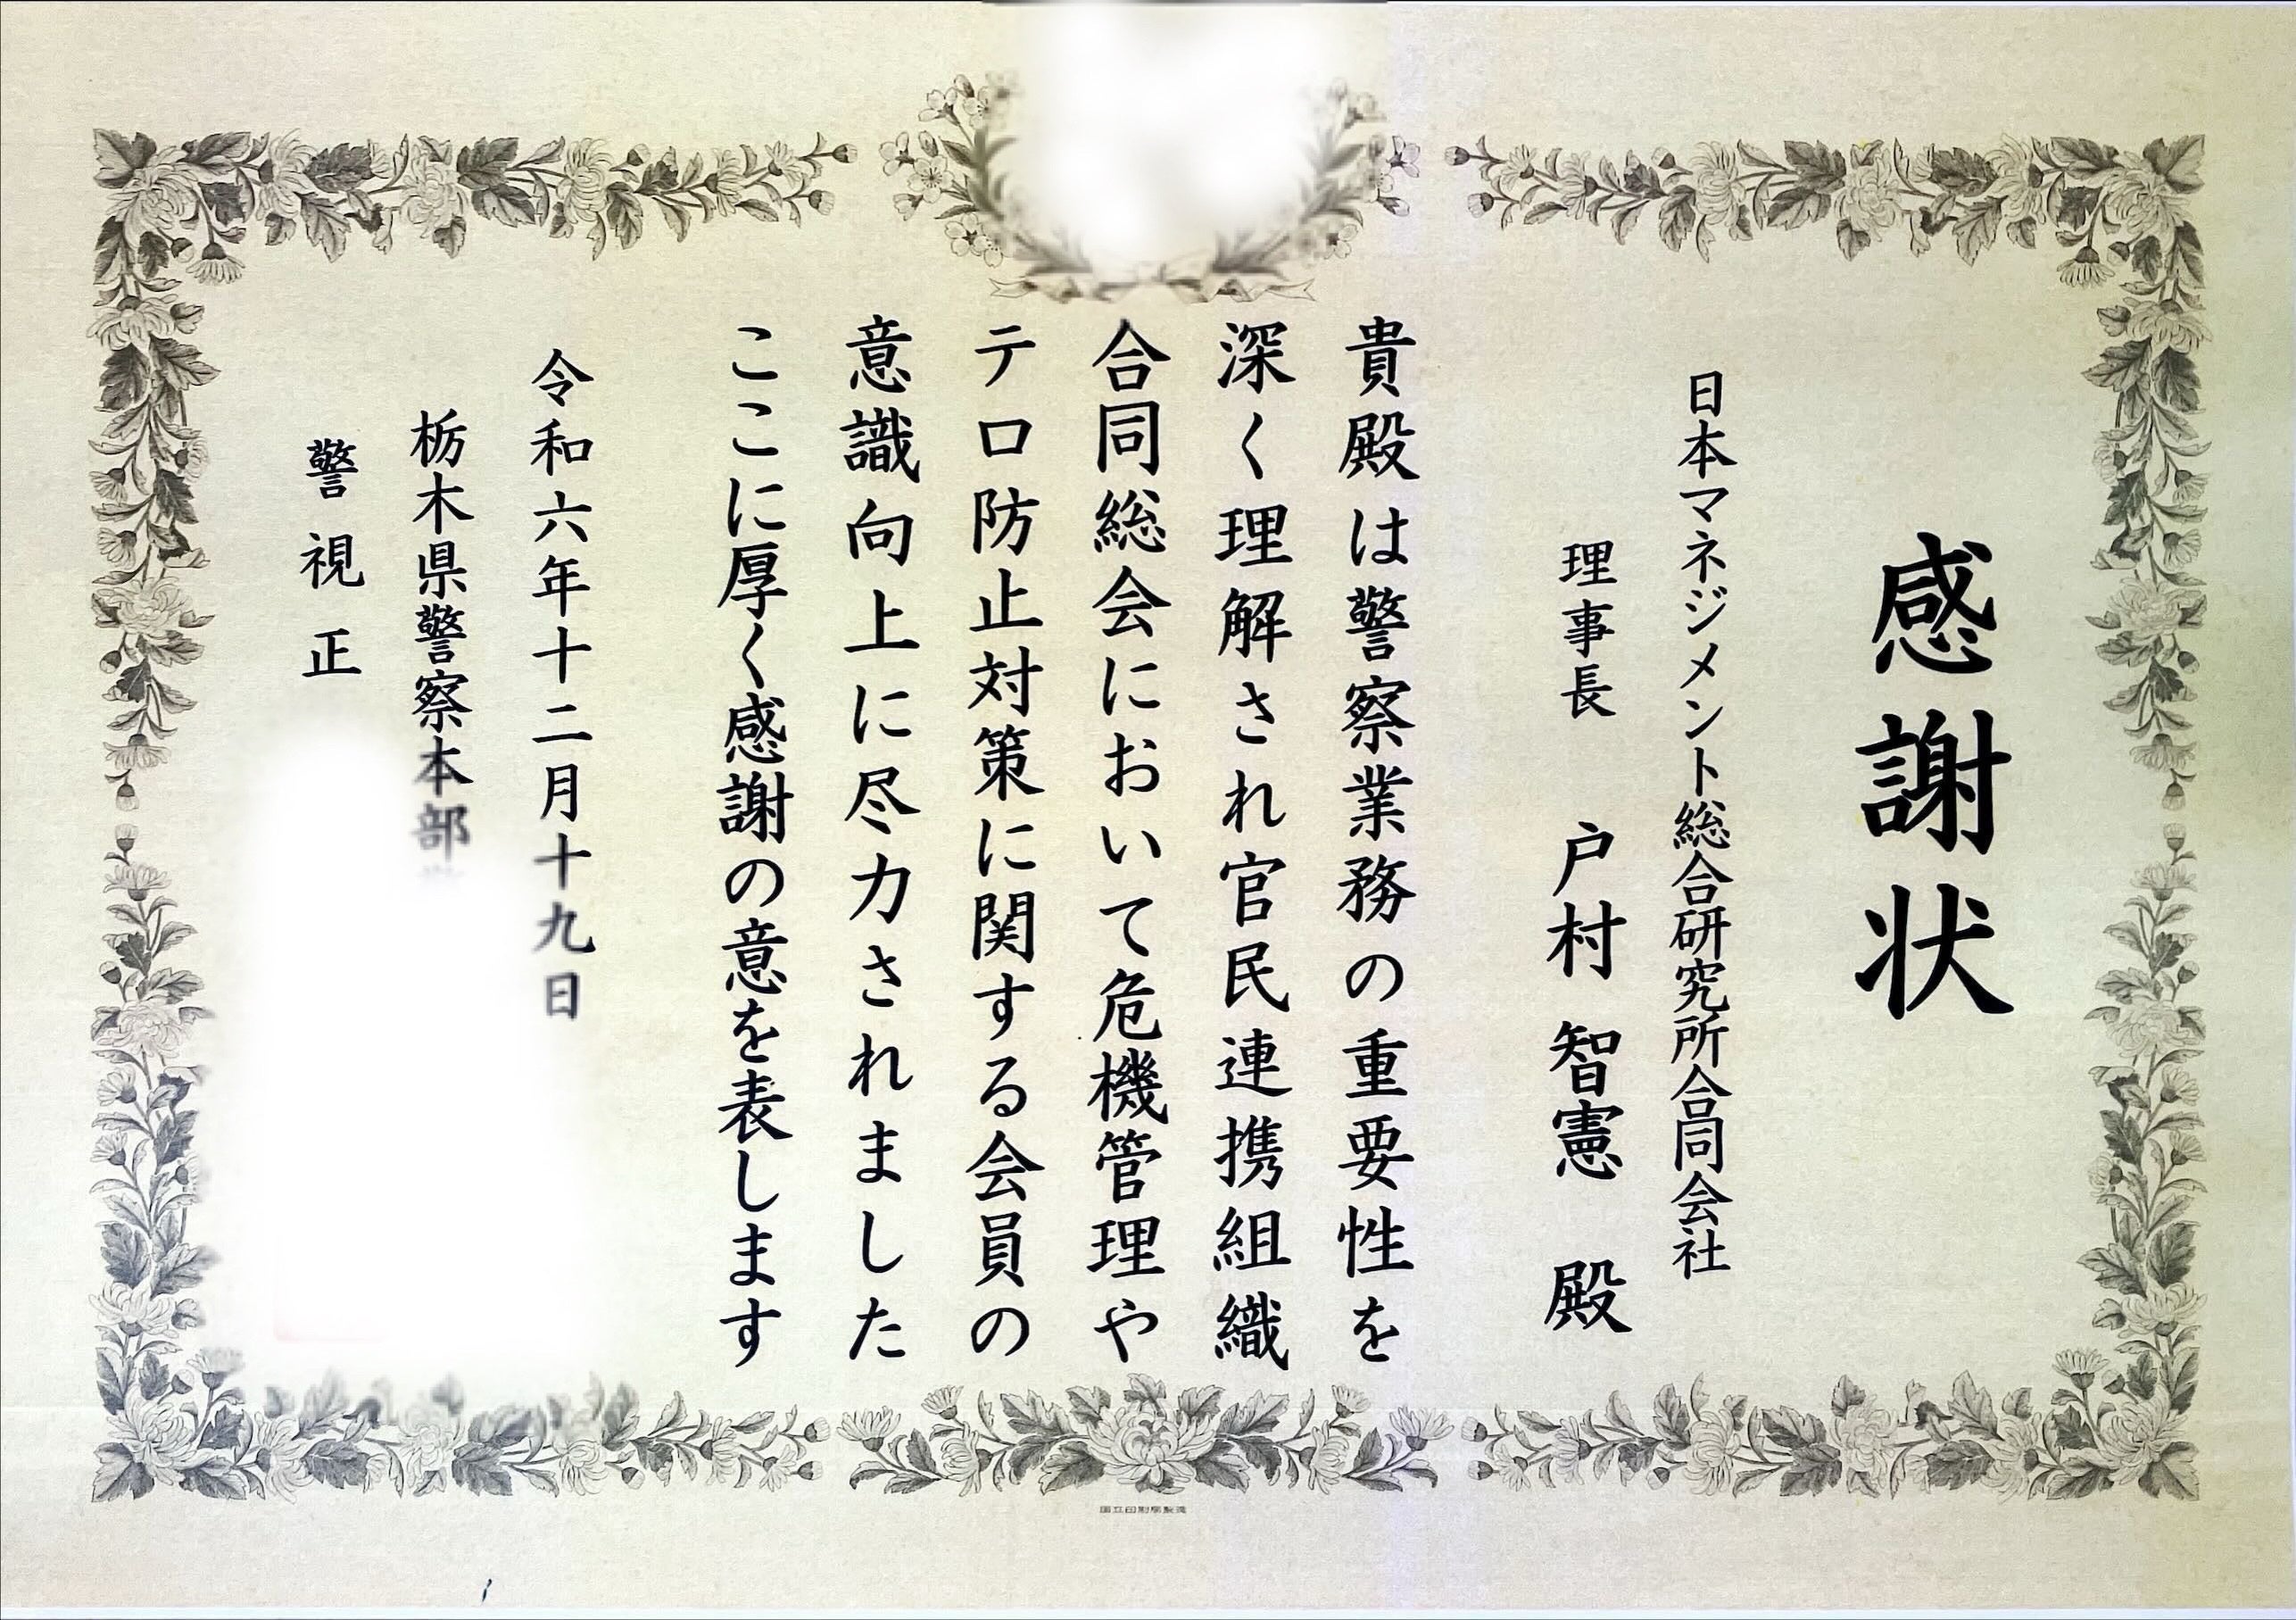 感謝状
日本マネジメント総合研究所合同会社
理事長 戸村智憲 殿
貴殿は警察業務の重要性を
深く理解され官民連携組織
合同総会において危機管理や
テロ防止対策に関する会員の
意識向上に尽力されました
ここに厚く感謝の意を表します
令和六年十二月十九日
栃木県警察本部
警視正
国立印刷局製造